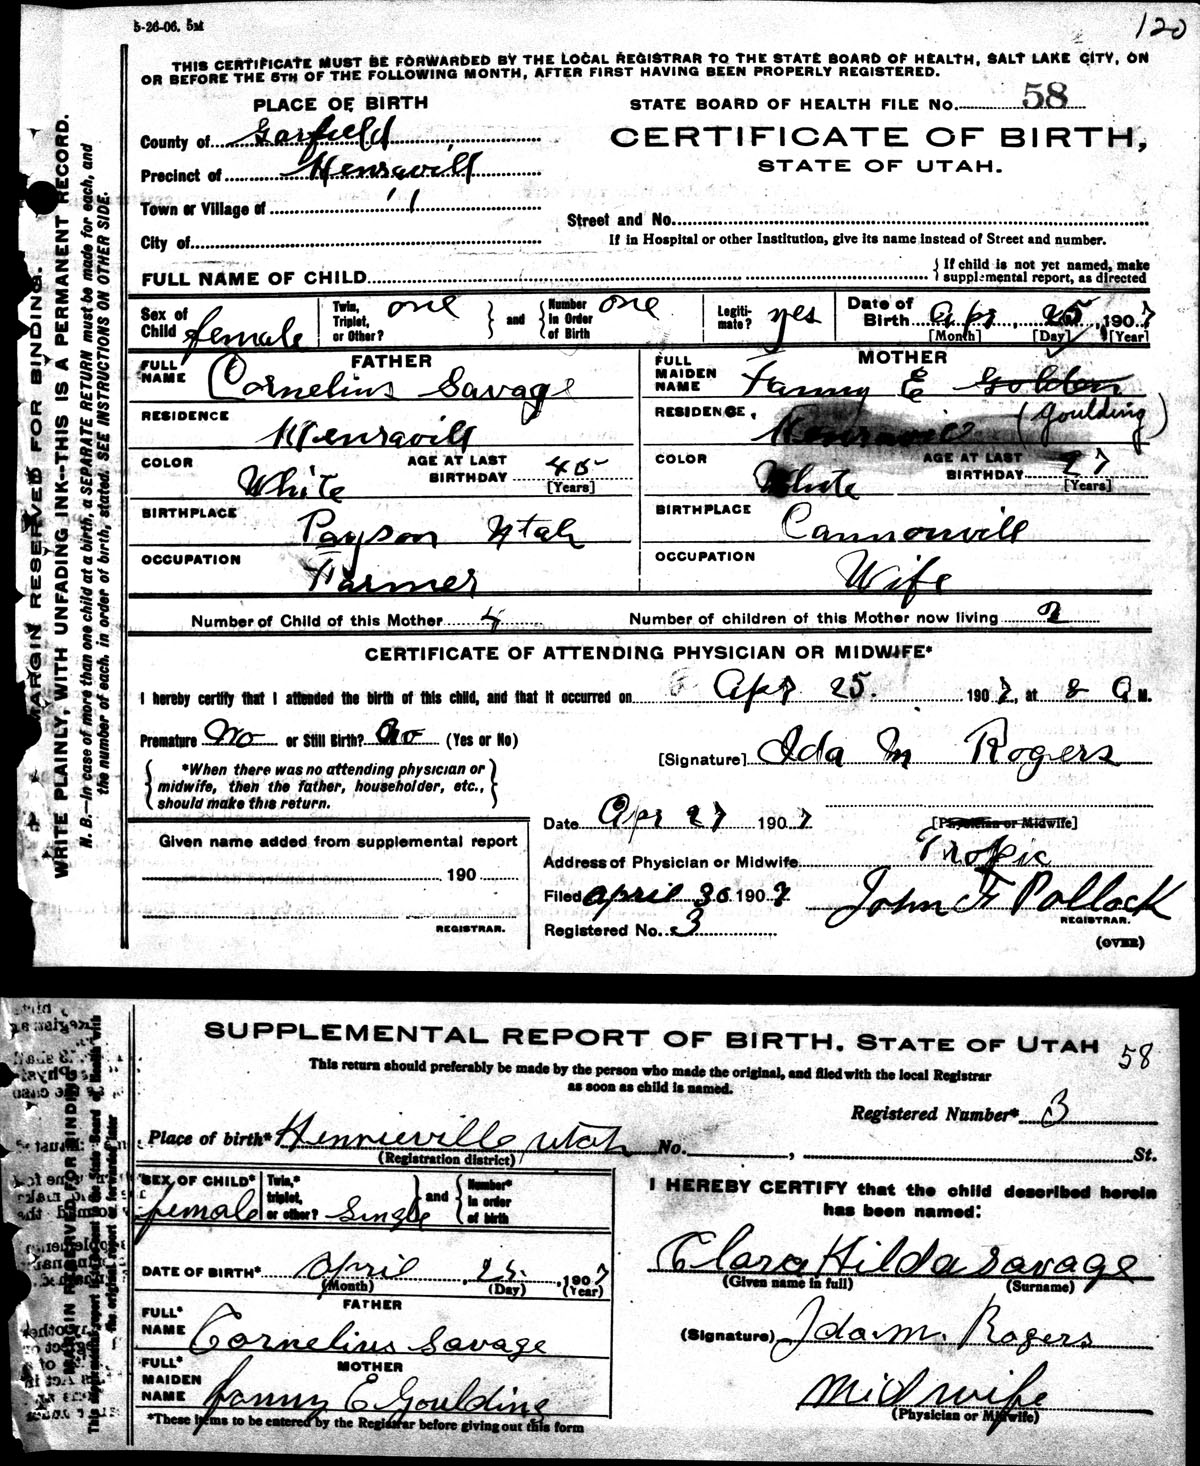 5-26-06. 5M
120
THIS CERTIFICATE MUST BE FORWARDED BY THE LOCAL REGISTRAR TO THE STATE BOARD OF HEALTH, SALT LAKE CITY, ON
OR BEFORE THE 5TH OF THE FOLLOWING MONTH, AFTER FIRST HAVING BEEN PROPERLY REGISTERED.
MARGIN RESERVED FOR BINDING.
WRITE PLAINLY, WITH UNFADING INK--THIS IS A PERMANENT RECORD.
N. B.--In case of more than one child at a birth, a SEPARATE RETURN must be made for each, and
the number of each, in order of birth, stated. SEE INSTRUCTIONS ON OTHER SIDE.
PLACE OF BIRTH
STATE BOARD OF HEALTH FILE No. 58
County of Garfield
CERTIFICATE OF BIRTH,
Precinct of Henravill
STATE OF UTAH.
Town or Village of ''
Street and No.
City of
If in Hospital or other Institution, give its name instead of Street and number.
FULL NAME OF CHILD
{ If child is not yet named, make
supplemental report, as directed
Sex of Child female
Twin, Triplet, or Other? one } and { Number In Order of Birth one
Legiti-mate? yes
Date of Birth Apr 25, 1907
[Month] [Day] [Year]
FATHER
MOTHER
FULL NAME Cornelius Savage
FULL MAIDEN NAME Fanny E Golden
(Goulding)
RESIDENCE Henravill
RESIDENCE,
COLOR White AGE AT LAST BIRTHDAY 45 [Years]
COLOR White AGE AT LAST BIRTHDAY 27 [Years]
BIRTHPLACE Payson Utah
BIRTHPLACE Cannonvill
OCCUPATION Farmer
OCCUPATION Wife
Number of Child of this Mother 4
Number of children of this Mother now living 2
CERTIFICATE OF ATTENDING PHYSICIAN OR MIDWIFE*
I hereby certify that I attended the birth of this child, and that it occurred on Apr 25. 1907, at 8 A M.
Premature No or Still Birth? No (Yes or No)
[Signature] Ida M Rogers
{ *When there was no attending physician or
midwife, then the father, householder, etc.,
should make this return. }
Date Apr 27 1907
[Physician or Midwife]
Given name added from supplemental report
190
REGISTRAR.
Address of Physician or Midwife Tropic
Filed April 30 1907
John F Pollock
REGISTRAR.
Registered No. 3
(OVER)
SUPPLEMENTAL REPORT OF BIRTH. STATE OF UTAH
58
This return should preferably be made by the person who made the original, and filed with the local Registrar
as soon as child is named.
Registered Number* 3
Place of birth* Henrieville Utah No. , St.
(Registration district)
SEX OF CHILD* female
Twin,* triplet, or other? Single } and { Number* in order of birth
I HEREBY CERTIFY that the child described herein
has been named:
Clara Hilda Savage
(Given name in full) (Surname)
DATE OF BIRTH* April, 25, 1907
(Month) (Day) (Year)
FATHER
FULL* NAME Cornelius Savage
(Signature) Ida M. Rogers
MOTHER
FULL* MAIDEN NAME Fanny E Goulding
Midwife
(Physician or Midwife)
*These items to be entered by the Registrar before giving out this form